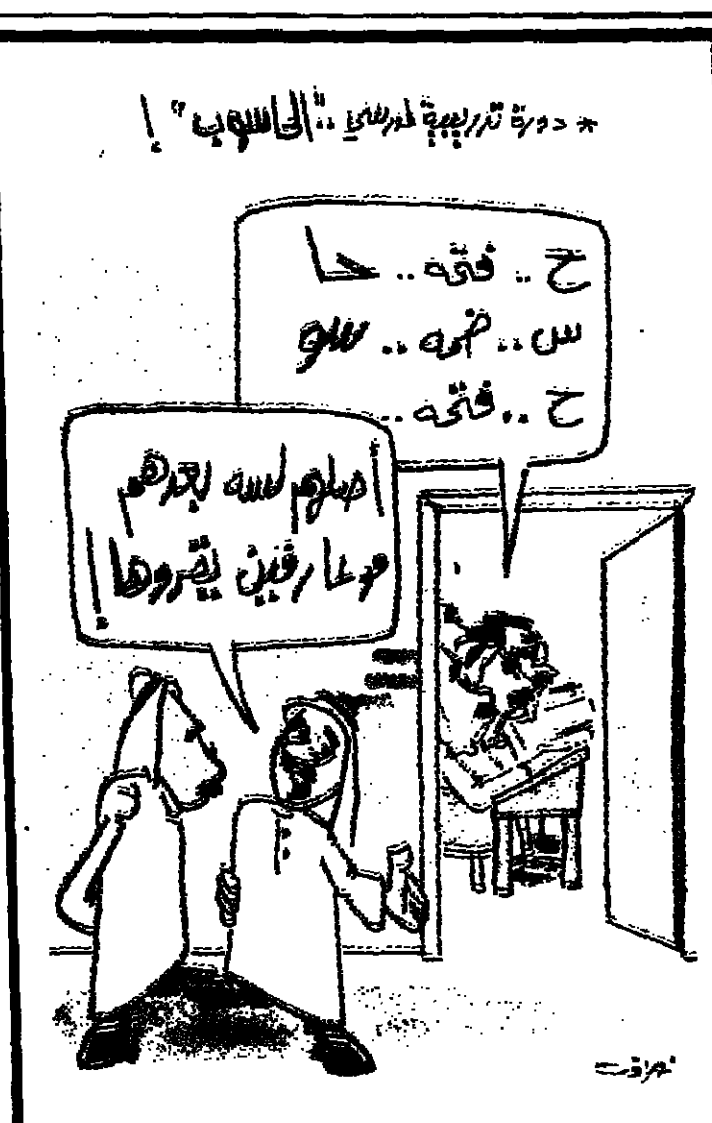 * دورة تدريبية لمدرسي .. "الحاسوب" !
ح .. فتحة .. حا
س .. ضمه .. سو
ح .. فتحه ..
اصلهم لسه بعدهم
مو عارفين يقروها !